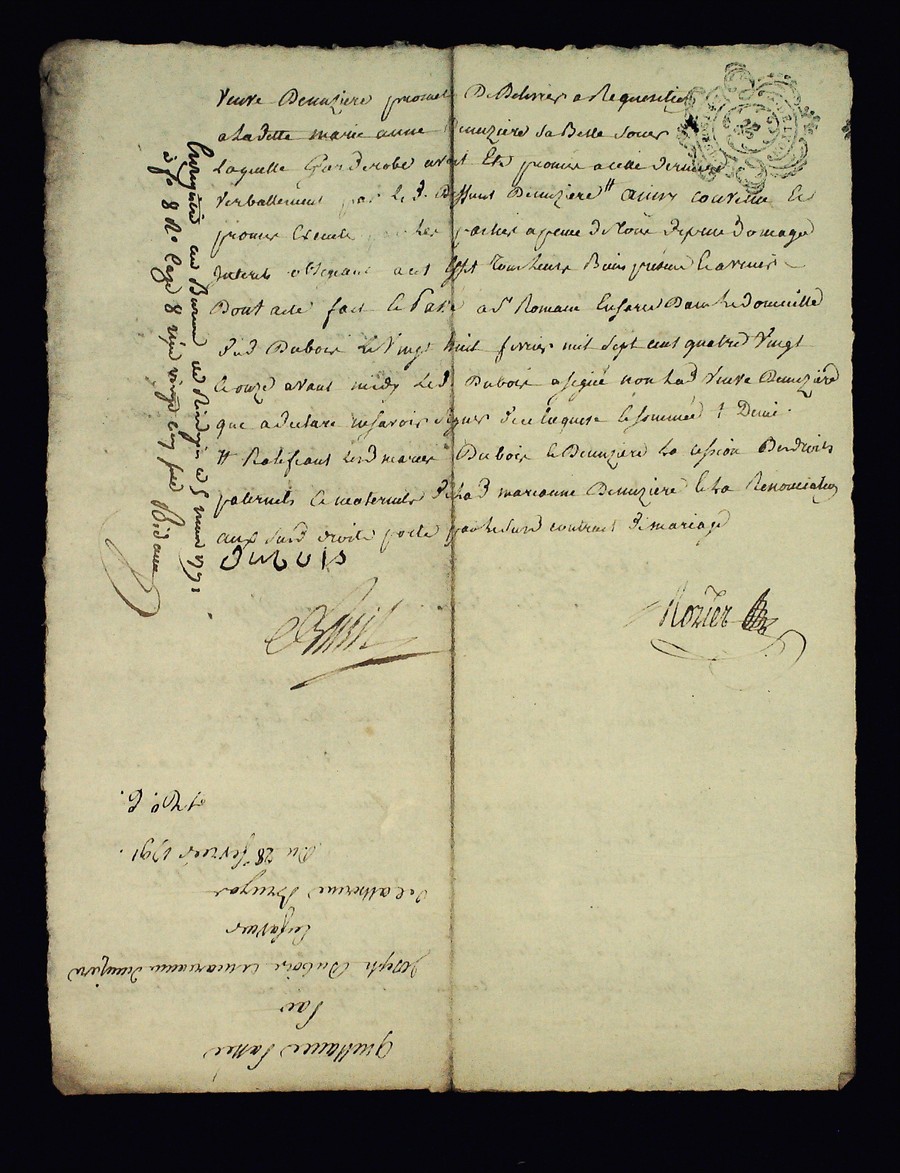 Veuve Denuziere promet De Delivrer a Requisition
a Ladette marie anne Denuziere sa Belle Soeur
Laquelle Garderobe avoit Eté promise a cette derniere
verballement par Le d. Deffunt Denuziere # ainsy convenu Et
promis Execute par Les parties a peine de tous Depens Domages
Interets obligeant a cet Effet tous Leurs Biens presens Et avenirs
Dont acte fait Et Passé a St Romain En Jarez Dans Le Domicille
dud Dubois Le Vingt huit fevrier mil sept cent quatre Vingt
Et onze avant midy Led Dubois a signé non Lad Veuve Denuziere
que a declaré ne savoir signer de ce Enquise Et sommée
# Ratifiant Lesd mariés Dubois Et Denuziere La cession Des droits
paternels Et maternels de Lad marianne Denuziere Et La Renonciation
aux susd droits porté par Le susd contract de mariage
DUBOIS
Rozier
Enregistré au Bureau de 5 mars 1791
fo 8 Ro Case 8 reçu vingt cinq sols
Quittance Passée
Par
Joseph Dubois Et marianne Denuziere
En faveur
de catherine
Du 28 fevrier 1791.